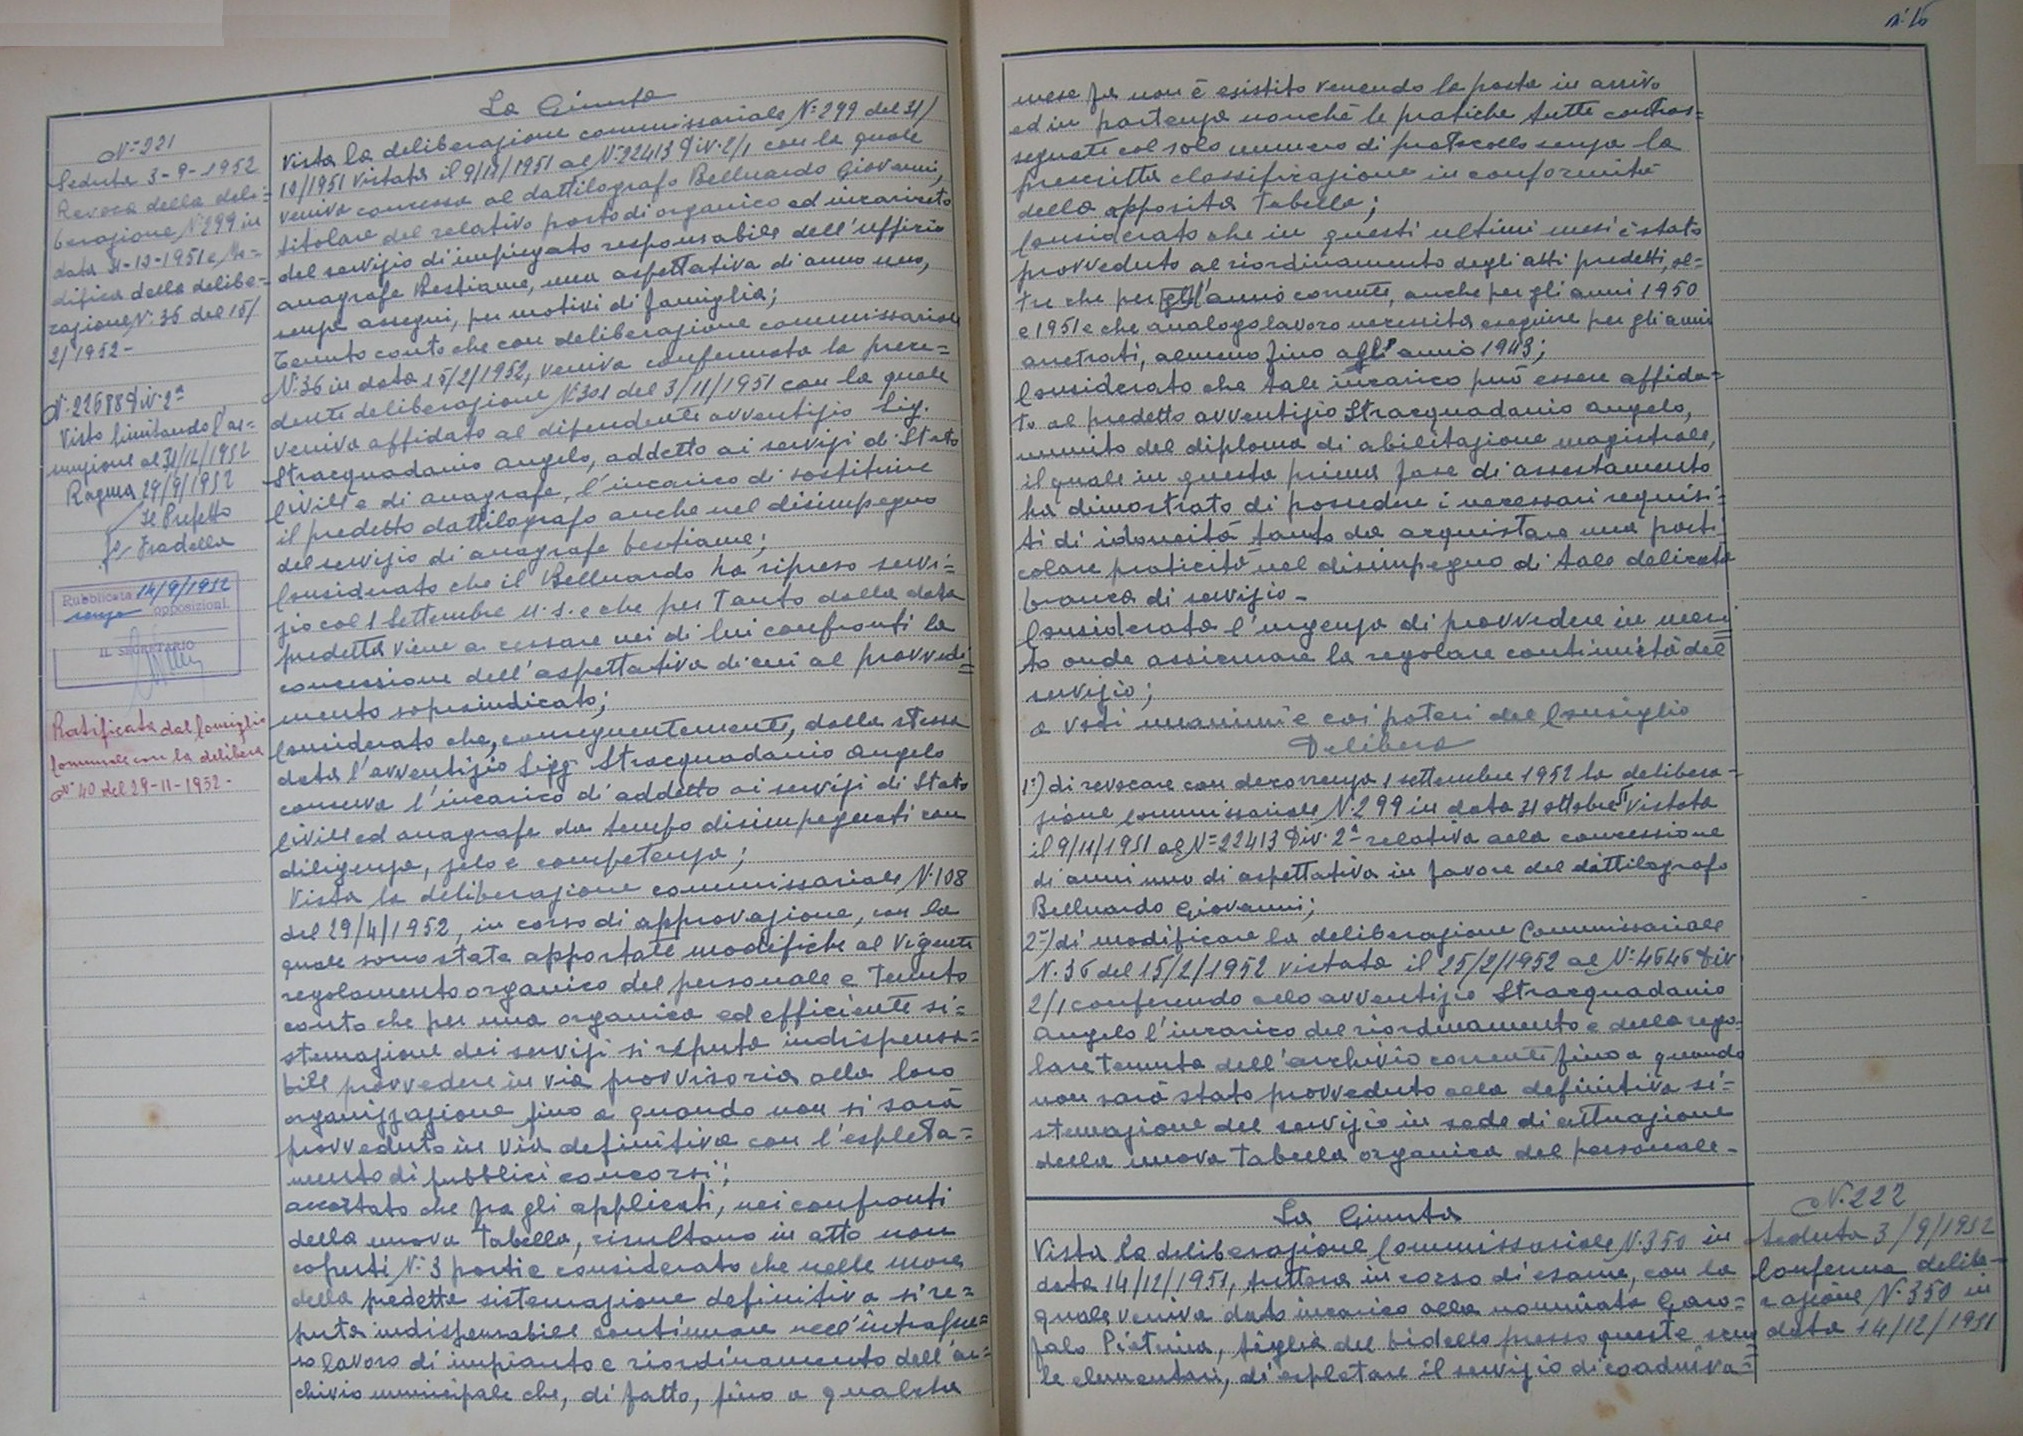 N=221
Seduta 3-9-1952
Revoca della deli=
berazione N°299 in
data 31-10-1951 e Mo=
difica della delibe=
razione N. 36 del 15/
2/1952-
N. 22588 Div. 2ª
Visto limitando l'as=
sunzione al 31/12/1952
Ragusa 29/9/1952
Il Prefetto
Pubblicata 14/9/1952
senza opposizioni.
IL SEGRETARIO
Ratificata dal Consiglio
Comunale con la delibera
N° 40 del 29-11-1952-
La Giunta
Vista la deliberazione commissariale N=299 del 31/
10/1951 vistata il 9/11/1951 al N=22413 Div. 2/1 con la quale
veniva concessa al dattilografo Belluardo Giovanni,
titolare del relativo posto di organico ed incaricato
del servizio di impiegato responsabile dell'ufficio
anagrafe Bestiame, una aspettativa di anno uno,
senza assegni, per motivi di famiglia;
Tenuto conto che con deliberazione commissariale
N.36 in data 15/2/1952, veniva confermata la prece=
dente deliberazione N.301 del 3/11/1951 con la quale
veniva affidato al dipendente avventizio Sig.
Stracquadanio Angelo, addetto ai servizi di Stato
Civile e di anagrafe, l'incarico di sostituire
il predetto dattilografo anche nel disimpegno
del servizio di anagrafe bestiame;
Considerato che il Belluardo ha ripreso servi=
zio col 1 Settembre u.s. e che per tanto dalla data
predetta viene a cessare nei di lui confronti la
concessione dell'aspettativa di cui al provvedi=
mento sopraindicato;
Considerato che, conseguentemente, dalla stessa
data l'avventizio Sigg. Stracquadanio Angelo
conserva l'incarico di addetto ai servizi di Stato
Civile ed anagrafe da tempo disimpegnati con
diligenza, zelo e competenza;
Vista la deliberazione commissariale N.108
del 29/4/1952, in corso di approvazione, con la
quale sono state apportate modifiche al vigente
regolamento organico del personale e tenuto
conto che per una organica ed efficiente si=
stemazione dei servizi si reputa indispensa=
bile provvedere in via provvisoria alla loro
organizzazione fino a quando non si sarà
provveduto in via definitiva con l'espleta=
mento di pubblici concorsi;
accertato che fra gli applicati, nei confronti
della nuova tabella, risultano in atto non
coperti N.3 posti e considerato che nelle more
della predetta sistemazione definitiva si re=
puta indispensabile continuare nell'intrapre=
so lavoro di impianto e riordinamento dell'ar=
chivio municipale che, di fatto, fino a qualche
mese fa non è esistito venendo la posta in arrivo
ed in partenza nonchè le pratiche tutte contras=
segnate col solo numero di protocollo senza la
prescritta classificazione in conformità
della apposita Tabella;
Considerato che in questi ultimi mesi è stato
provveduto al riordinamento degli atti predetti, ol=
tre che per l'anno corrente, anche per gli anni 1950
e 1951 e che analogo lavoro necessita eseguire per gli anni
arretrati, almeno fino all'anno 1943;
Considerato che tale incarico può essere affida=
to al predetto avventizio Stracquadanio Angelo,
munito del diploma di abilitazione magistrale,
il quale in questa prima fase di assestamento
ha dimostrato di possedere i necessari requisi=
ti di idoneità tanto da acquistare una parti
colare praticità nel disimpegno di tale delicata
branca di servizio-
Considerata l'urgenza di provvedere in meri
to onde assicurare la regolare continuità del
servizio;
a voti unanimi e coi poteri del Consiglio
Delibera
1°) di revocare con decorrenza 1 settembre 1952 la delibera=
zione commissariale N.299 in data 31 ottobre vistata
il 9/11/1951 al N=22413 Div. 2ª relativa alla concessione
di anni uno di aspettativa in favore del dattilografo
Belluardo Giovanni;
2°) di modificare la deliberazione Commissariale
N.36 del 15/2/1952 vistata il 25/2/1952 al N=4646 Div
2/1 conferendo allo avventizio Stracquadanio
Angelo l'incarico del riordinamento e della rego=
lare tenuta dell'archivio corrente fino a quando
non sarà stato provveduto alla definitiva si=
stemazione del servizio in sede di attuazione
della nuova tabella organica del personale-
La Giunta
Vista la deliberazione Commissariale N.350 in
data 14/12/1951, tuttora in corso di esame, con la
quale veniva dato incarico alla nominata Garo=
falo Pietrina, figlia del bidello presso queste scuo
le elementari, di espletare il servizio di coadiuva=
N.222
Seduta 3/9/1952
Conferma delibe=
razione N.350 in
data 14/12/1951